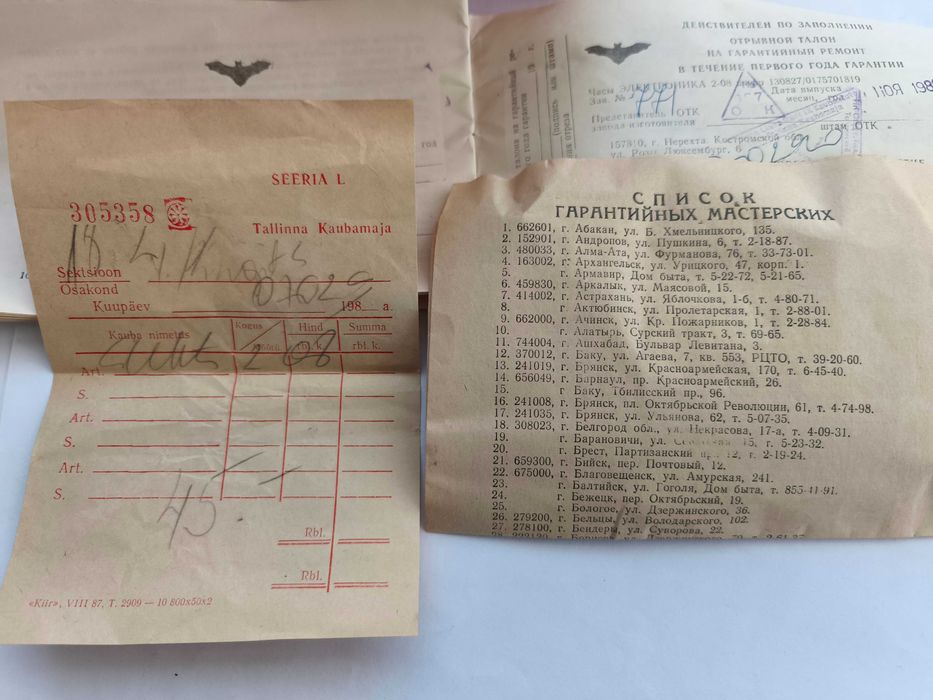 SEERIA L
305358
Tallinna Kaubamaja
18
Seksisioon
Osakond
07029
Kuupäev 198 a.
Kauba nimetus Kogus Hind rbl. k. Summa rbl. k.
2-08
Art.
S.
Art.
S.
Art.
S.
45-
Rbl.
Rbl.
«Kiir», VIII 87, T. 2909 — 10 800x50x2
ДЕЙСТВИТЕЛЕН ПО ЗАПОЛНЕНИИ
ОТРЫВНОЙ ТАЛОН
НА ГАРАНТИЙНЫЙ РЕМОНТ
В ТЕЧЕНИЕ ПЕРВОГО ГОДА ГАРАНТИИ
Часы ЭЛЕКТРОНИКА 2-08 130827/0175701819
Зав. № 771 Дата выпуска
месяц, год
Представитель ОТК
завода-изготовителя штамп ОТК
157810, г. Нерехта Костромской обл.
ул. Розы Люксембург, 6
СПИСОК
ГАРАНТИЙНЫХ МАСТЕРСКИХ
1. 662601, г. Абакан, ул. Б. Хмельницкого, 135.
2. 152901, г. Андропов, ул. Пушкина, 6, т. 2-18-87.
3. 480033, г. Алма-Ата, ул. Фурманова, 76, т. 33-73-01.
4. 163002, г. Архангельск, ул. Урицкого, 47, корп. 1.
5. г. Армавир, Дом быта, т. 5-22-72, 5-21-65.
6. 459830, г. Аркалык, ул. Маясовой, 15.
7. 414002, г. Астрахань, ул. Яблочкова, 1-б, т. 4-80-71.
8. г. Актюбинск, ул. Пролетарская, 1, т. 2-88-01.
9. 662000, г. Ачинск, ул. Кр. Пожарников, 1, т. 2-28-84.
10. г. Алатырь, Сурский тракт, 3, т. 69-65.
11. 744004, г. Ашхабад, Бульвар Левитана, 3.
12. 370012, г. Баку, ул. Агаева, 7, кв. 553, РЦТО, т. 39-20-60.
13. 241019, г. Брянск, ул. Красноармейская, 170, т. 6-45-40.
14. 656049, г. Барнаул, пр. Красноармейский, 26.
15. г. Баку, Тбилисский пр., 96.
16. 241008, г. Брянск, пл. Октябрьской Революции, 61, т. 4-74-98.
17. 241035, г. Брянск, ул. Ульянова, 62, т. 5-07-35.
18. 308023, г. Белгород обл., ул. Некрасова, 17-а, т. 4-09-31.
19. г. Барановичи, ул. 15, г. 5-23-32.
20. г. Брест, Партизанский пр. 12, т. 2-19-24.
21. 659300, г. Бийск, пер. Почтовый, 12.
22. 675000, г. Благовещенск, ул. Амурская, 241.
23. г. Балтийск, ул. Гоголя, Дом быта, т. 855-41-91.
24. г. Бежецк, пер. Октябрьский, 19.
25. г. Бологое, ул. Дзержинского, 36.
26. 279200, г. Бельцы, ул. Володарского, 102.
27. 278100, г. Бендеры, ул. Суворова, 22.